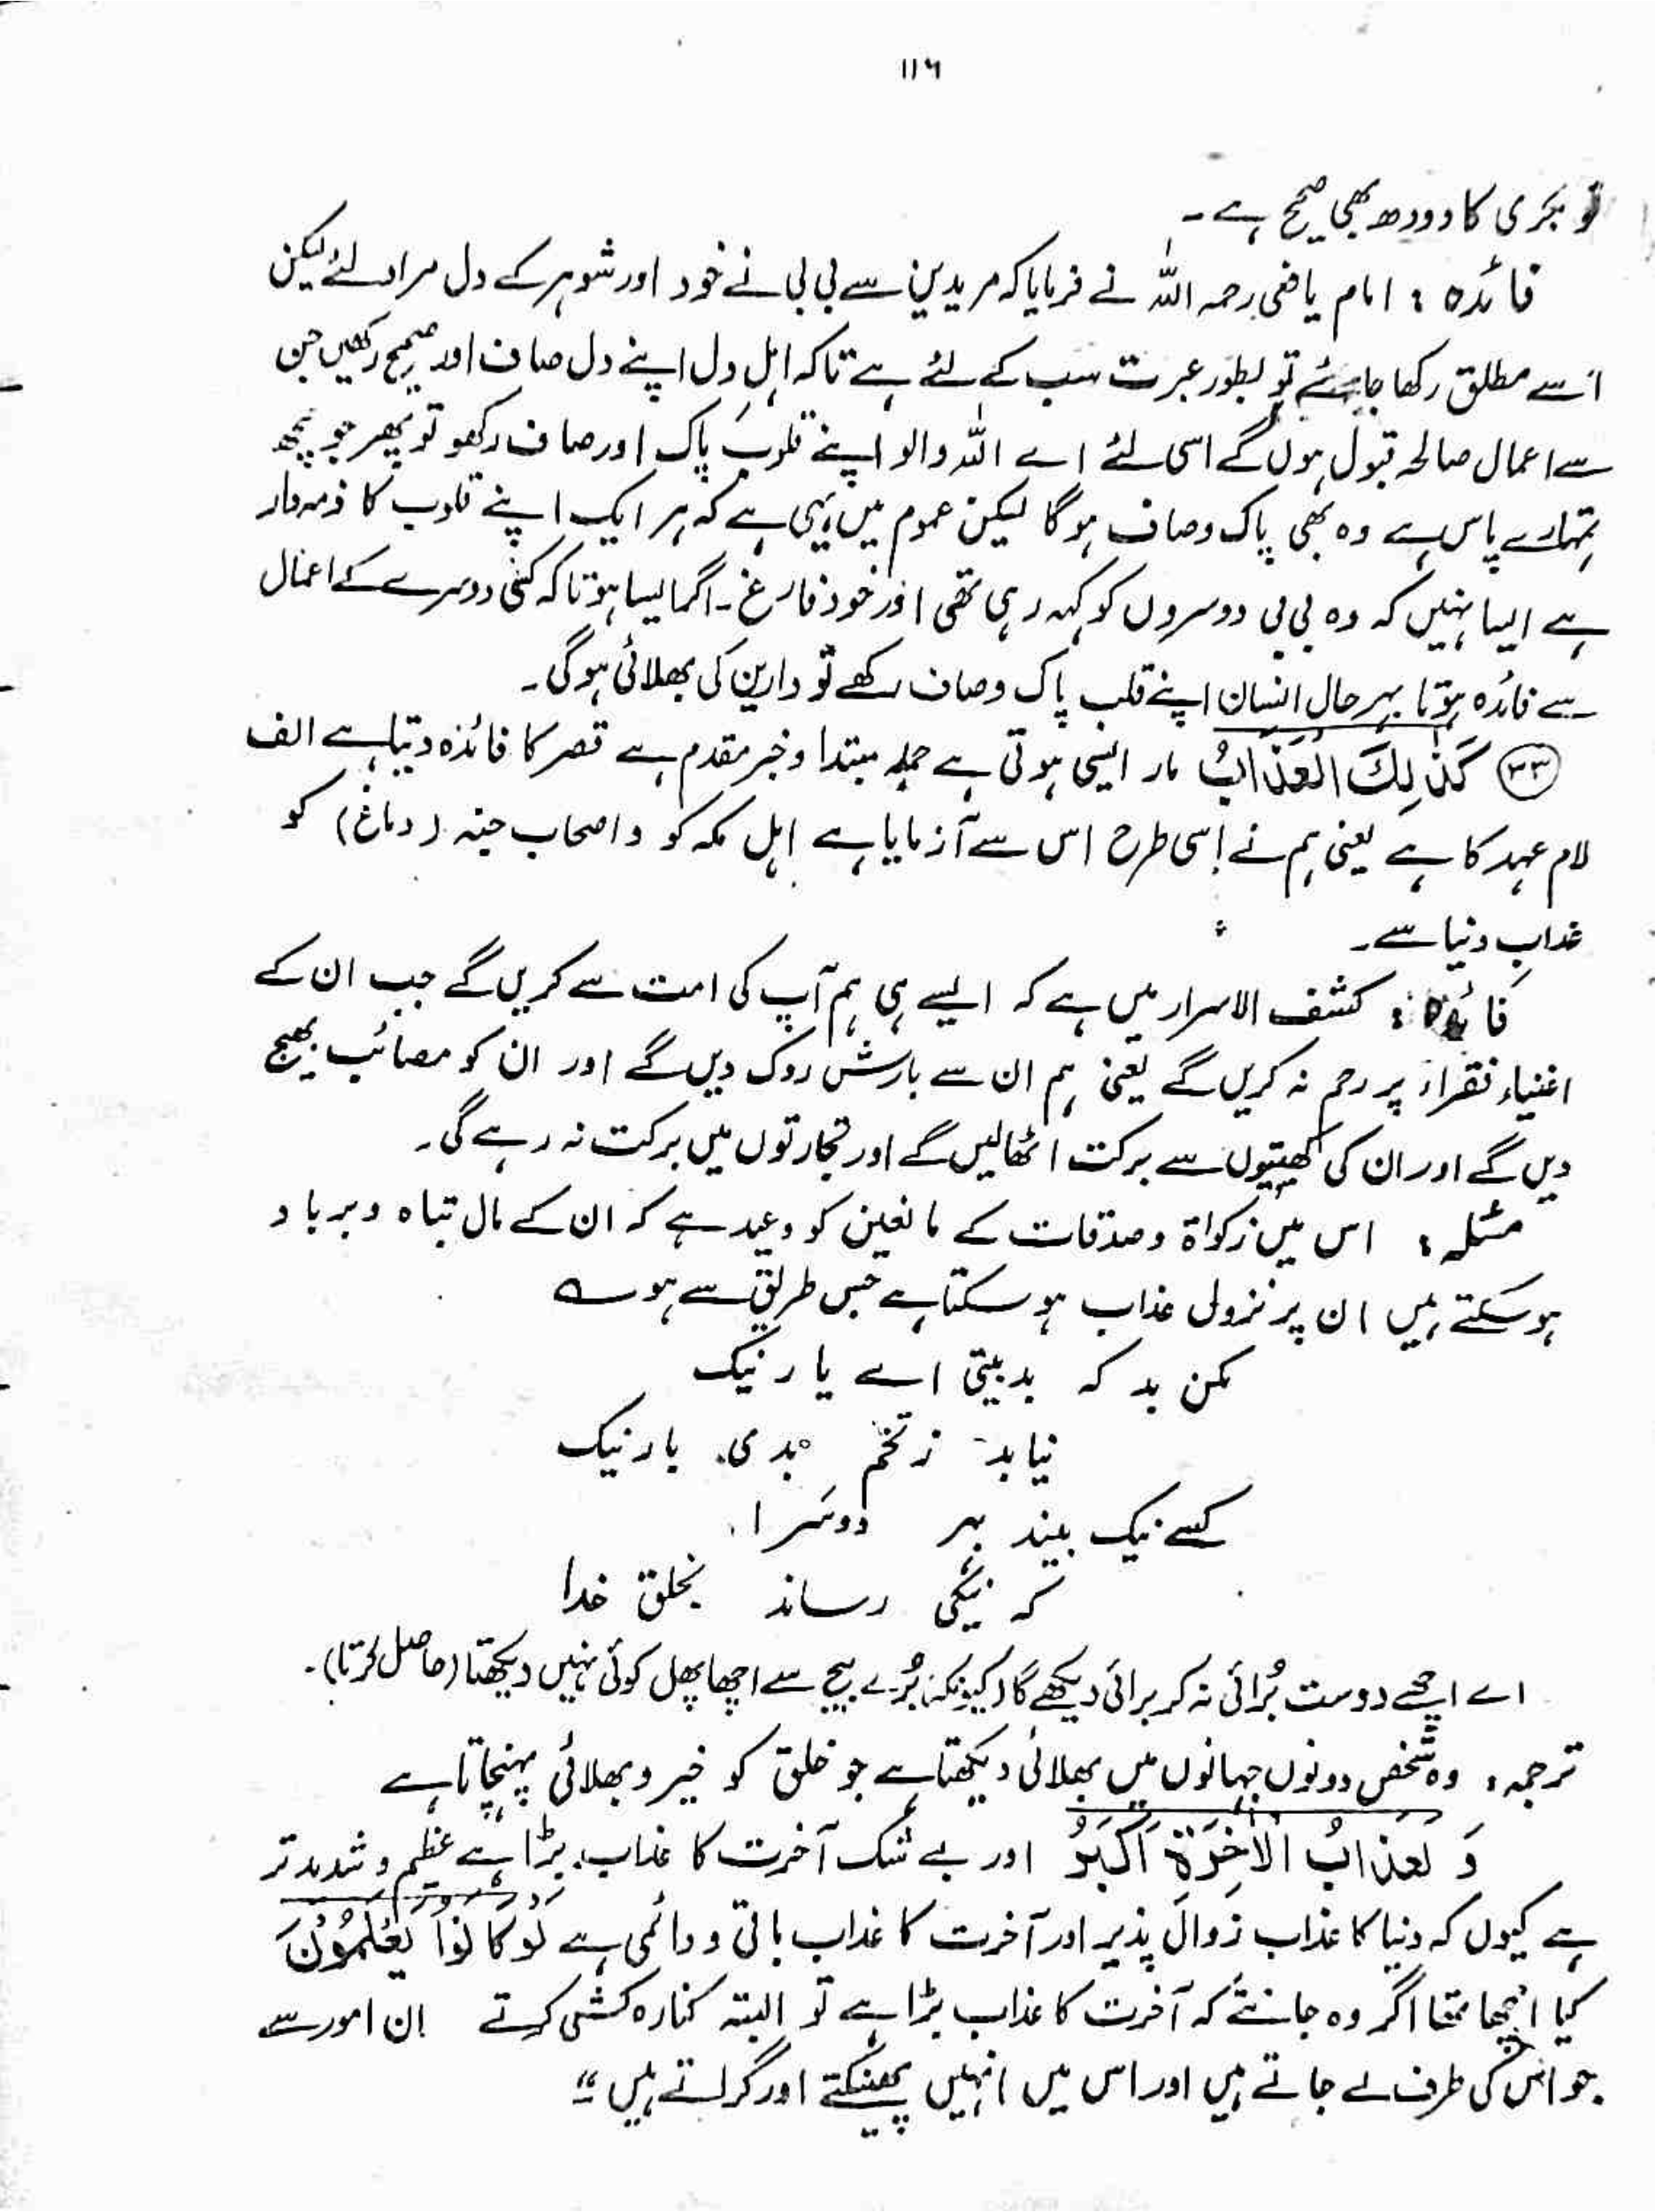 ۱۱۶
تو بکری کا دودھ بھی صحیح ہے۔
فائدہ : امام یافعی رحمہ اللہ نے فرمایا کہ مریدین سے بی بی نے خود اور شوہر کے دل مراد لئے لیکن
اسے مطلق رکھا جائے تو بطور عبرت سب کے لئے ہے تاکہ اہل دل اپنے دل صاف اور صحیح رکھیں جن
سے اعمال صالحہ قبول ہوں گے اسی لئے اے اللہ والو اپنے قلوب پاک اور صاف رکھو تو پھر جو کچھ
تمہارے پاس ہے وہ بھی پاک وصاف ہوگا لیکن عموم میں یہی ہے کہ ہر ایک اپنے قلوب کا ذمہ دار
ہے ایسا نہیں کہ وہ بی بی دوسروں کو کہہ رہی تھی اور خود فارغ۔ اگر ایسا ہوتا کہ کسی دوسرے کے اعمال
سے فائدہ ہوتا بہر حال انسان اپنے قلب پاک وصاف رکھے تو دارین کی بھلائی ہوگی۔
(۳۳) كَذٰلِكَ الْعَذَابُ مار ایسی ہوتی ہے جملہ مبتدا وخبر مقدم ہے قصر کا فائدہ دیتا ہے الف
لام عہد کا ہے یعنی ہم نے اسی طرح اس سے آزمایا ہے اہل مکہ کو واصحاب جنہ (دباغ) کو
عذاب دنیا سے۔
فائدہ : کشف الاسرار میں ہے کہ ایسے ہی ہم آپ کی امت سے کریں گے جب ان کے
اغنیاء فقراء پر رحم نہ کریں گے یعنی ہم ان سے بارش روک دیں گے اور ان کو مصائب بھیج
دیں گے اور ان کی کھیتیوں سے برکت اٹھالیں گے اور تجارتوں میں برکت نہ رہے گی۔
مسئلہ : اس میں زکواۃ وصدقات کے مانعین کو وعید ہے کہ ان کے مال تباہ وبرباد
ہوسکتے ہیں ان پر نزول عذاب ہوسکتا ہے جس طریق سے ہو ؎
مکن بد کہ بدبینی اے یار نیک
نیابد زتخم بدی بار نیک
کسے نیک بیند بہر دوسرا
کہ نیکی رساند بخلق خدا
اے اچھے دوست بُرائی نہ کر برائی دیکھے گا (کیونکہ) بُرے بیج سے اچھا پھل کوئی نہیں دیکھتا (حاصل کرتا)۔
ترجمہ : وہ شخص دونوں جہانوں میں بھلائی دیکھتا ہے جو خلق کو خیر وبھلائی پہنچاتا ہے
وَ لَعَذَابُ الْاٰخِرَةِ اَكْبَرُ اور بے شک آخرت کا عذاب بڑا ہے عظیم وشدید تر
ہے کیوں کہ دنیا کا عذاب زوال پذیر اور آخرت کا عذاب باقی ودائمی ہے لَوْ كَانُوْا يَعْلَمُوْنَ
کیا اچھا تھا اگر وہ جانتے کہ آخرت کا عذاب بڑا ہے تو البتہ کنارہ کشی کرتے ان امور سے
جو اس کی طرف لے جاتے ہیں اور اس میں انہیں پھینکتے اور گراتے ہیں "